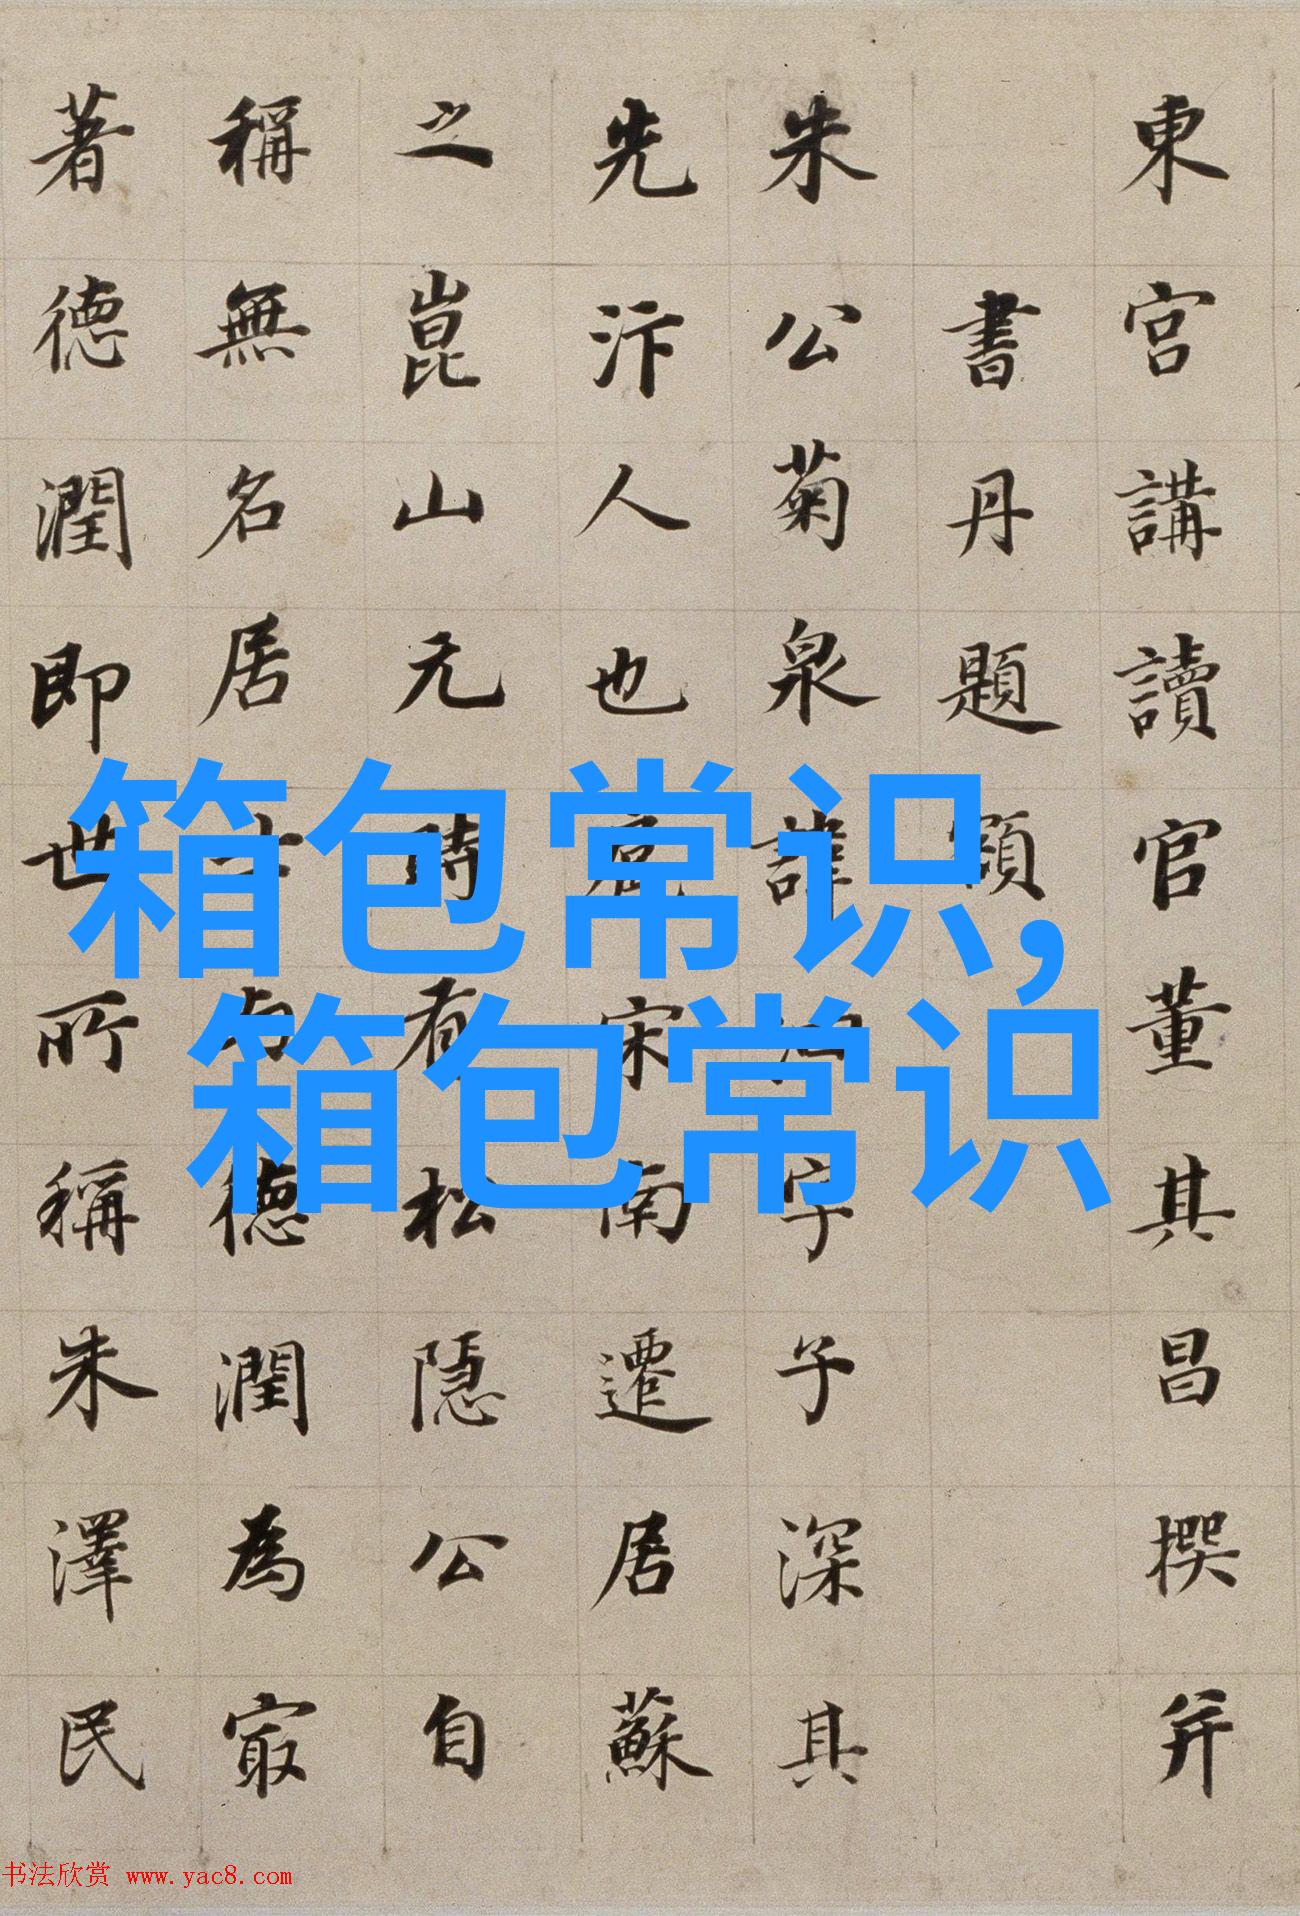 東宮講讀官董其昌撰并
書丹題額
朱公菊泉諱 字子深其
先汴人也 宋南遷居蘇
之崑山元時有松隱公自
稱無名居士 德潤為冣
著德潤即世所稱朱澤民
箱包常识,
箱包常识
书法欣赏 www.yac8.com